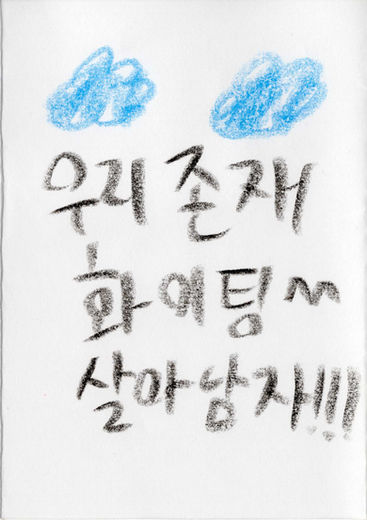 우리 존재
화이팅~
살아남자!!!